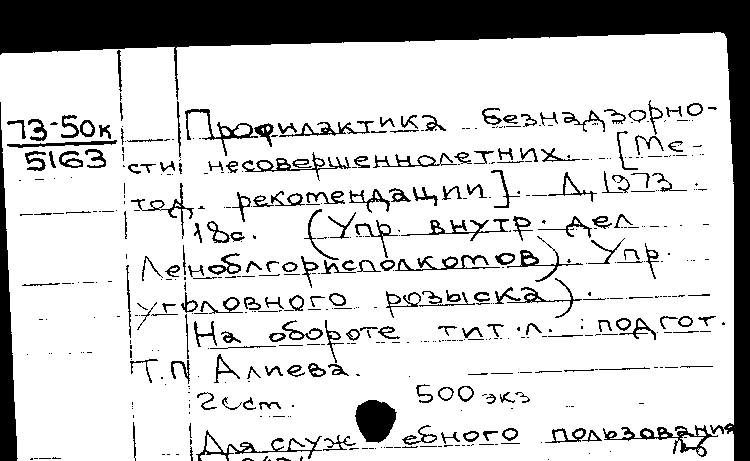 73-50к
5163
Профилактика безнадзорно-
сти несовершеннолетних. [Ме-
тод. рекомендации]. Л., 1973.
18с. (Упр. внутр. дел
Леноблгорисполкомов). Упр.
уголовного розыска).
На обороте тит. л.: подгот.
Т.П. Алиева.
500 экз
Для служебного пользования